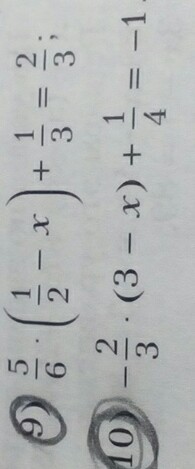 9) 5/6 · (1/2 − x) + 1/3 = 2/3;
10) −2/3 · (3 − x) + 1/4 = −1